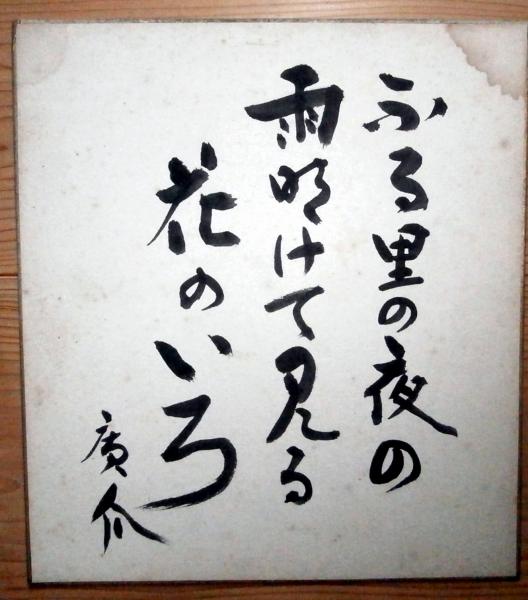 ふる里の夜の
雨明けて見る
花のいろ
廣爪